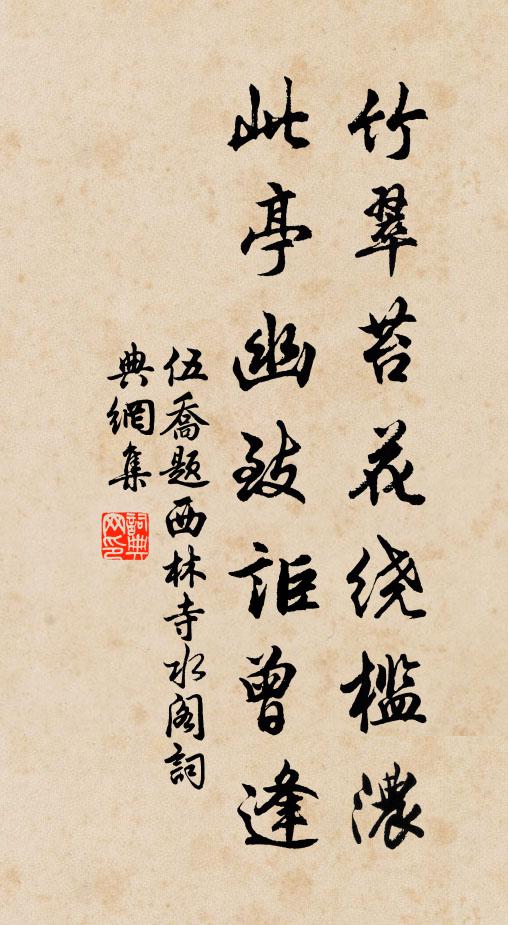 竹翠苔花绕槛浓
此亭幽致讵曾逢
伍喬题西林寺水阁詞
典網集
詞典
网印